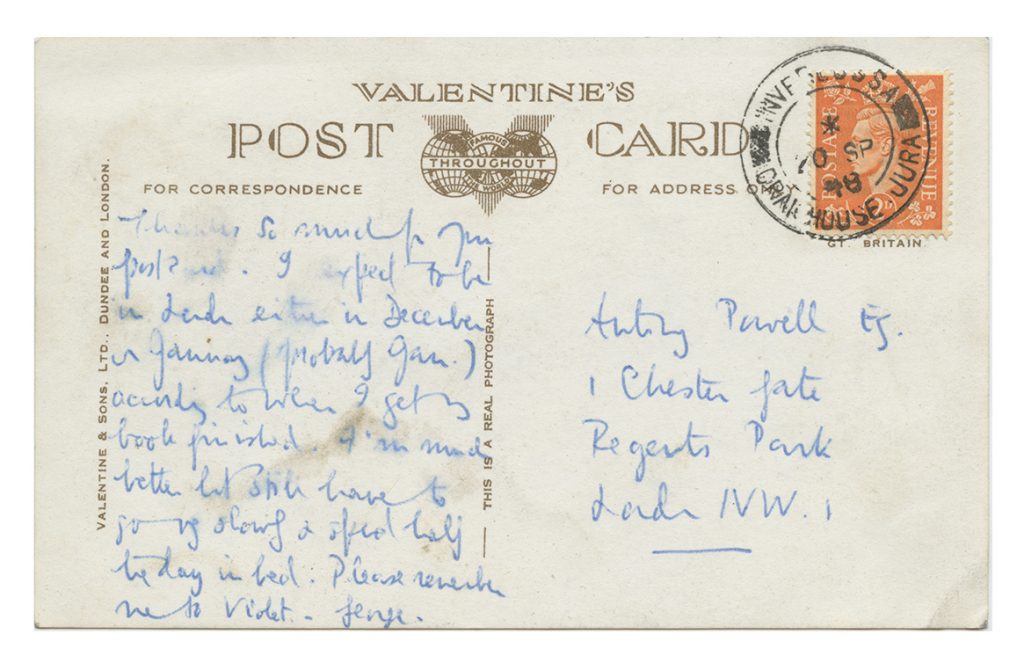 VALENTINE'S
POST CARD
FAMOUS
THROUGHOUT
THE WORLD
FOR CORRESPONDENCE
FOR ADDRESS ONLY
INVERLUSSA
* 
20 SP
48
CRAIGHOUSE JURA
POSTAGE
REVENUE
GT. BRITAIN
VALENTINE & SONS, LTD., DUNDEE AND LONDON.
THIS IS A REAL PHOTOGRAPH
Thanks so much for your
postcard. I expect to be
in London either in December
or January (probably Jan.)
according to when I get my
book finished. I'm much
better but still have to
go vy slowly & spend half
the day in bed. Please remember
me to Violet. - George.
Antony Powell Esq.
1 Chester Gate
Regents Park
London NW. 1